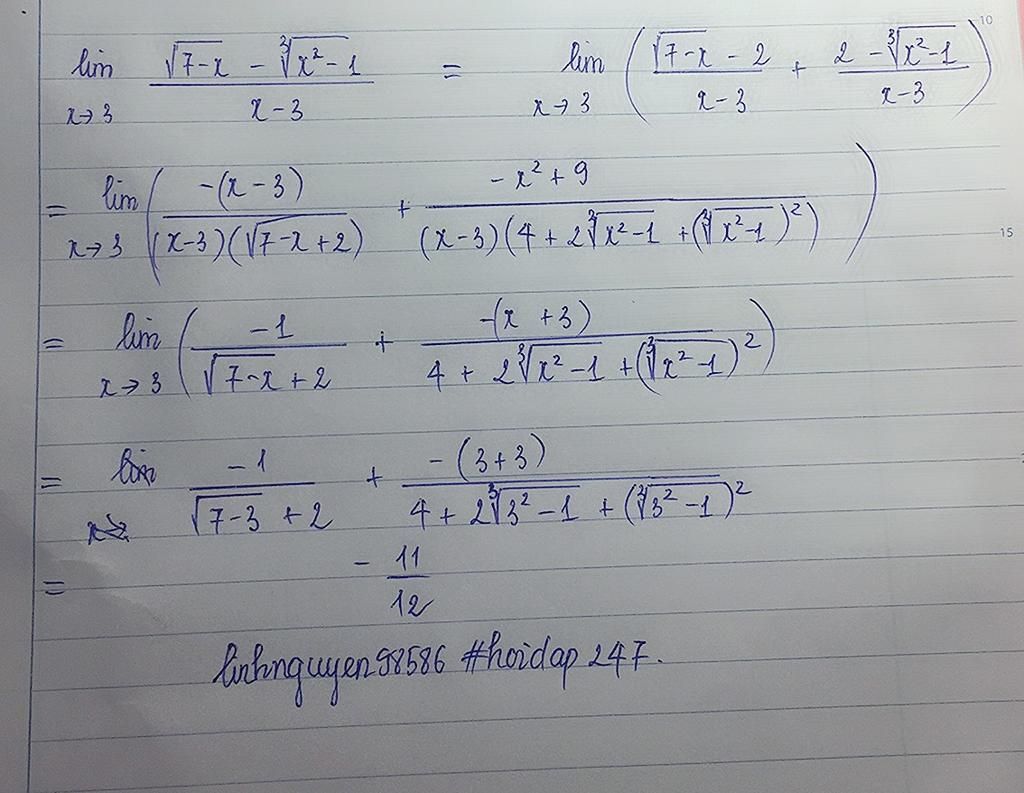 lim x→3 (√(7-x) - ∛(x²-1))/(x-3) = lim x→3 ((√(7-x) - 2)/(x-3) + (2 - ∛(x²-1))/(x-3)) 10
= lim x→3 (-(x-3)/((x-3)(√(7-x+2))) + (-x²+9)/((x-3)(4 + 2∛(x²-1) + (∛(x²-1))²))) 15
= lim x→3 (-1/(√(7-x) + 2) + -(x+3)/(4 + 2∛(x²-1) + (∛(x²-1))²))
= -1/(√(7-3) + 2) + -(3+3)/(4 + 2∛(3²-1) + (∛(3²-1))²)
= -11/12
linhnguyen98586 #hoidap247.